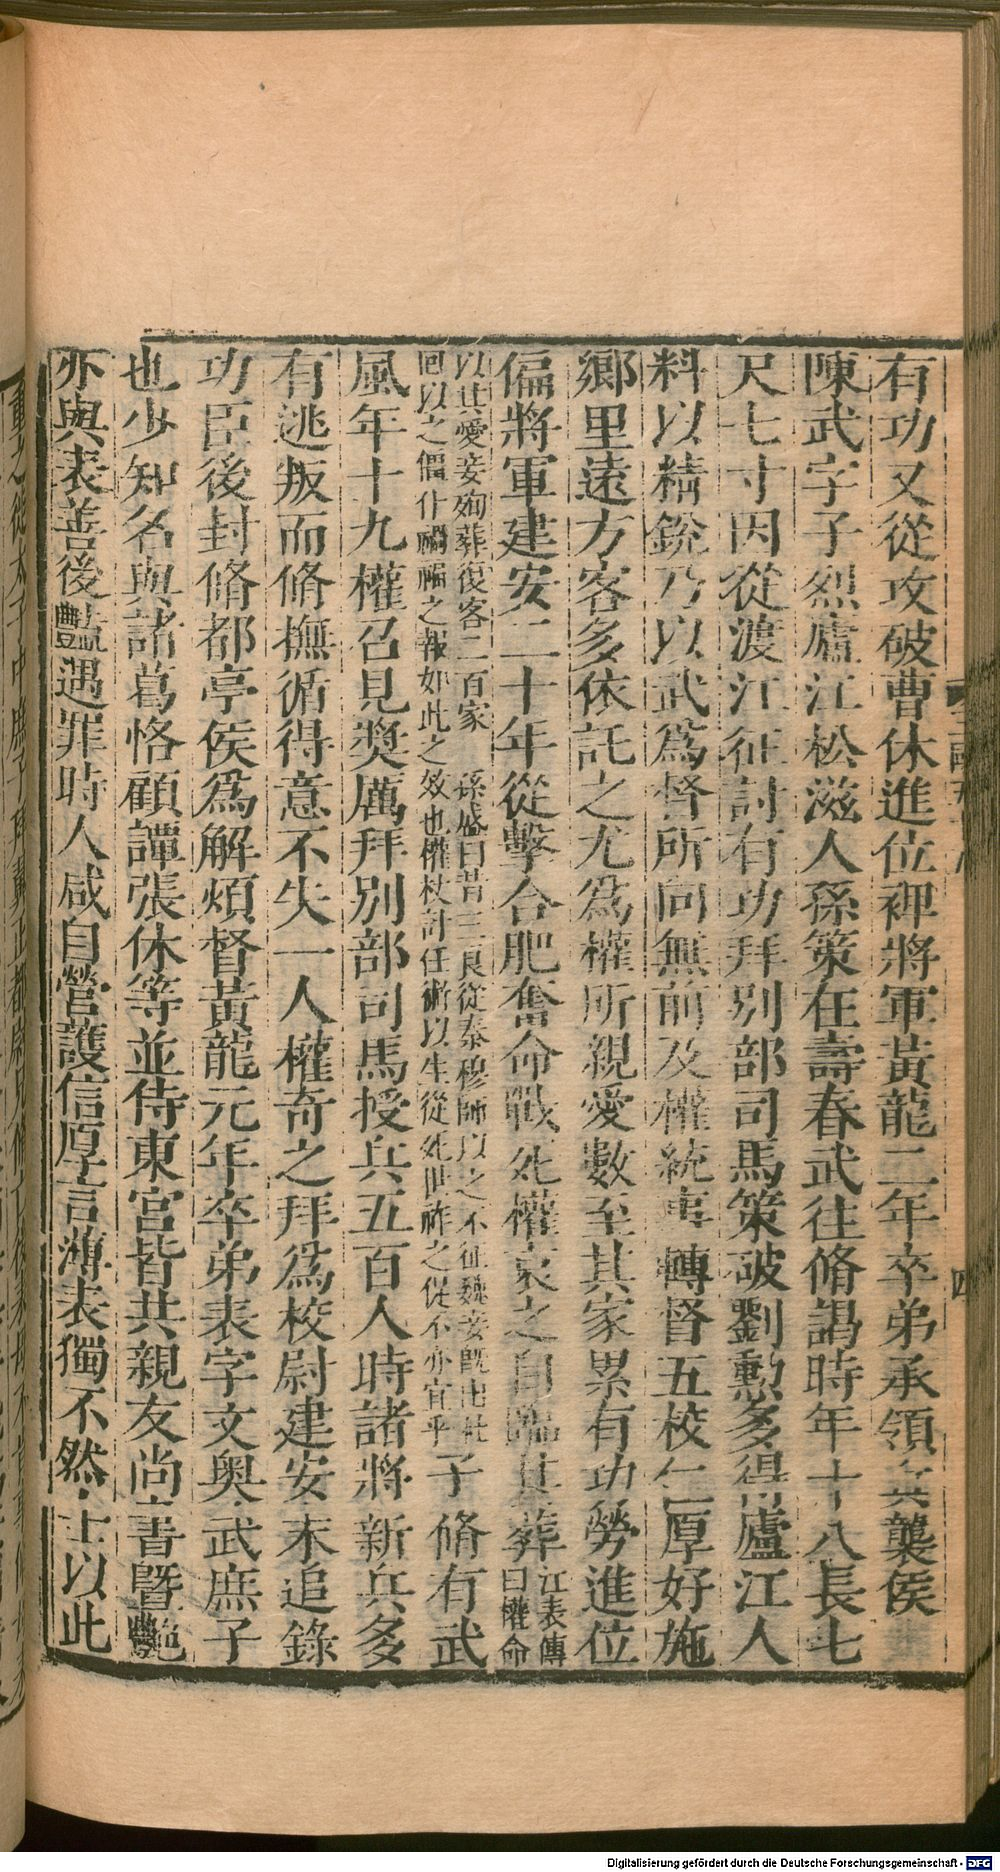 有功又從攻破曹休進位裨將軍黃龍二年卒弟承領兵襲侯
陳武字子烈廬江松滋人孫策在壽春武往脩謁時年十八長七
尺七寸因從渡江征討有功拜别部司馬策破劉勲多得廬江人
料以精銳乃以武爲督所向無前及權統事轉督五校仁厚好施
鄉里遠方客多依託之尤爲權所親愛數至其家累有功勞進位
偏將軍建安二十年從擊合肥奮命戰死權哀之自臨其葬江表傳
曰權命
以其愛妾殉葬復客二百家 孫盛曰昔三良從秦穆師以之不征魏妾旣出杜
回以之僵仆禍福之報如此之效也權杖計任術以生從死世祚之促不亦宜乎子脩有武
風年十九權召見奬厲拜别部司馬授兵五百人時諸將新兵多
有逃叛而脩撫循得意不失一人權奇之拜爲校尉建安末追錄
功臣後封脩都亭侯爲解煩督黃龍元年卒弟表字文奥武庶子
也少知名與諸葛恪顧譚張休等並侍東宮皆共親友尚書曁豔
亦與表善後豔遇罪時人咸自營護信厚言薄表獨不然士以此
四
Digitalisierung gefördert durch die Deutsche Forschungsgemeinschaft - DFG